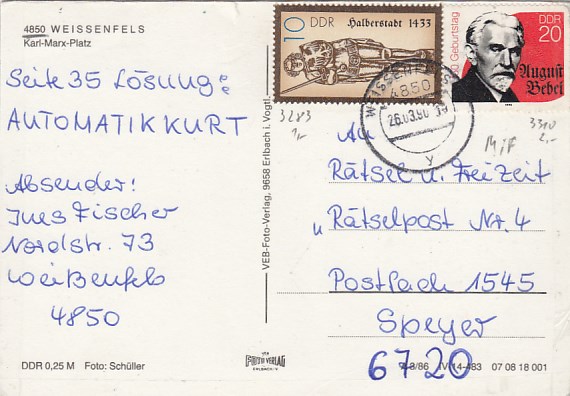 4850 WEISSENFELS
Karl-Marx-Platz
Seite 35 Lösung:
AUTOMATIKKURT
Absender:
Ines Fischer
Nordstr. 73
Weißenfels
4850
DDR 0,25 M Foto: Schüller
VEB-Foto-Verlag, 9658 Erlbach i. Vogtl.
FOTO VERLAG
ERLBACH V.
10 DDR Halberstadt 1433
Geburtstag
DDR
20
August
Bebel
4850
26.03.90
y
3283
1,-
MiF
3310
2,-
An
Rätsel u. Freizeit
"Rätselpost Nr. 4
Postfach 1545
Speyer
6720
8/86 IV-14-483 07 08 18 001